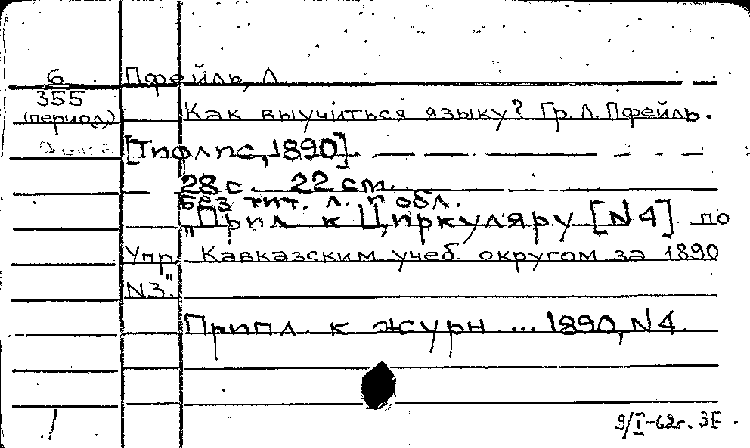 6
355
(период.)
Пфейль, Л.
Как выучиться языку? Гр. Л. Пфейль.
[Тифлис, 1890].
28 с. 22 cm.
Без тит. л. и обл.
"Прил. к Циркуляру [N 4] по
Упр. Кавказским учеб. округом за 1890
N3."
Прил. к журн ... 1890, N4.
9/I-62г. ЗЕ.